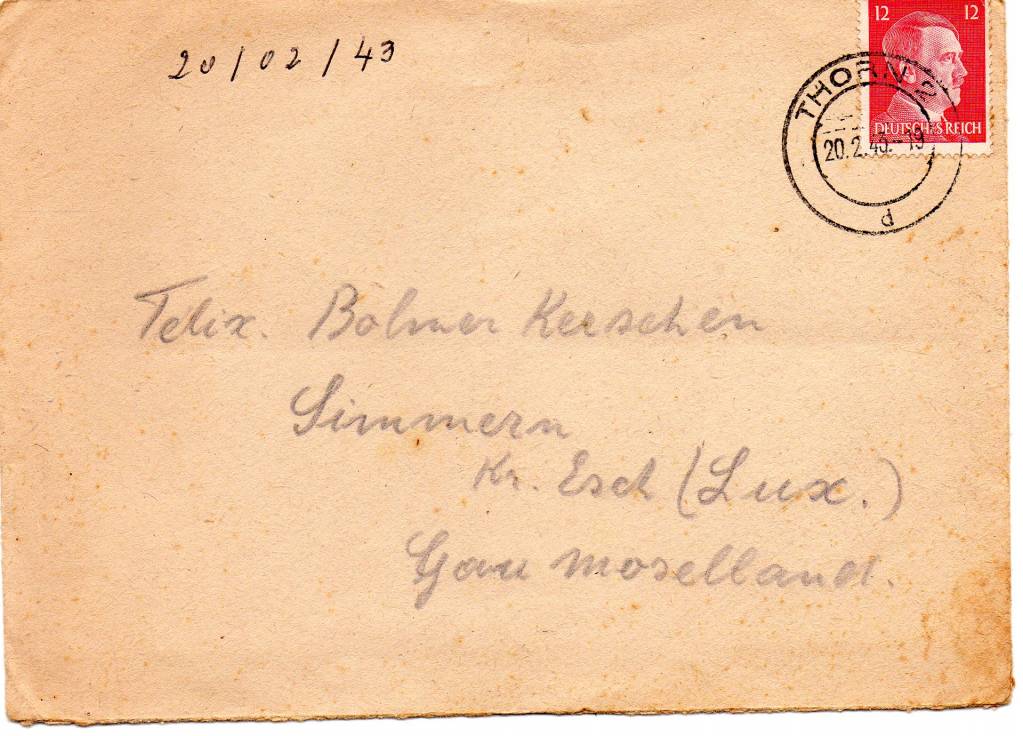 20/02/43
12 12
DEUTSCHES REICH
THORN 2
20.2.43.-19
d
Felix. Bolmer Kerschen
Simmern
Kr. Esch (Lux.)
Gau Moselland.